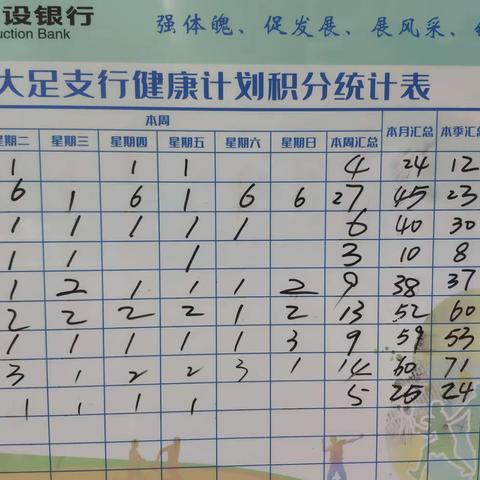 设银行
uction Bank
强体魄、促发展、展风采、
大足支行健康计划积分统计表
本周 本月汇总 本季汇总
星期二 星期三 星期四 星期五 星期六 星期日 本周汇总
1 1 1 4 24 12
6 1 6 1 6 6 27 45 23
1 1 1 1 1 6 40 30
1 1 1 3 10 8
1 2 1 1 1 2 9 38 37
2 2 2 2 1 2 13 52 60
1 1 1 1 1 3 9 59 53
3 1 2 2 3 1 14 60 71
1 1 1 1 5 24